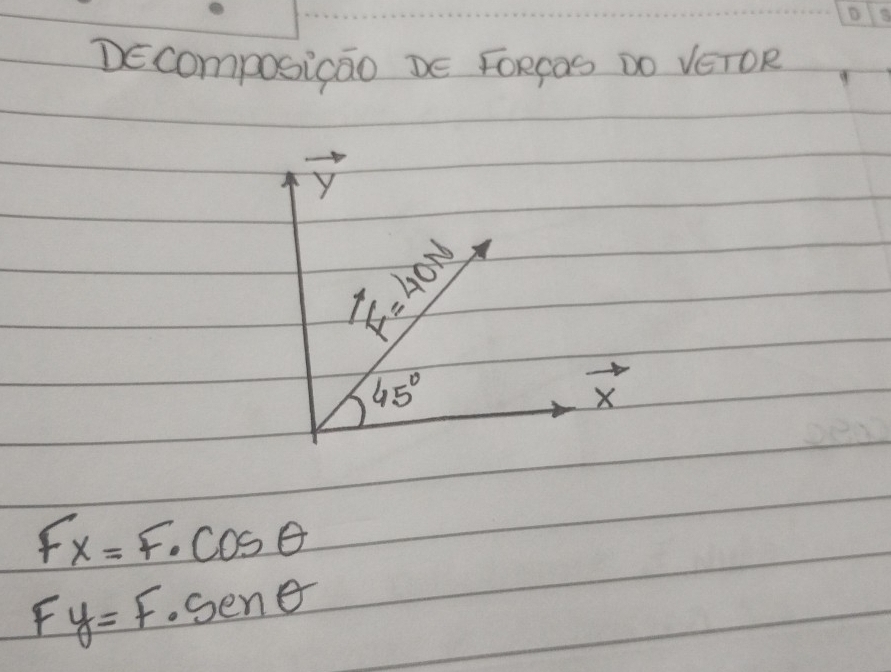 DECOMPOSIÇÃO DE FORÇAS DO VETOR
y
F=40N
45°
x
Fx = F. cos θ
Fy = F. sen θ